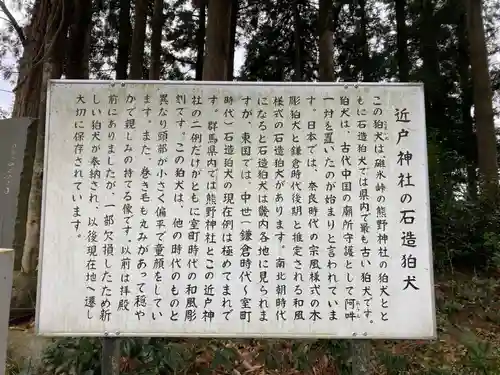 近戸神社の石造狛犬
この狛犬は碓氷峠の熊野神社の狛犬とと
もに石造狛犬では県内で最も古い狛犬です。
狛犬は、古代中国の廟所守護として阿吽
一対を置いたのが始まりと言われていま
す。日本では、奈良時代の宗風様式の木
彫狛犬と鎌倉時代後期と推定される和風
様式の石造狛犬があります。南北朝時代
になると石造狛犬は畿内各地に見られま
すが、東国では、中世(鎌倉時代〜室町
時代)石造狛犬の現在例は極めてまれで
す。群馬県内では熊野神社とこの近戸神
社の二例だけがともに室町時代の和風彫
刻です。この狛犬は、他の時代のものと
異なり頭部が小さく偏平で童顔をしてい
ます。また、巻き毛も丸みがあって穏や
かで親しみの持てる像です。以前は拝殿
前にありましたが、一部欠損したため新
しい狛犬が奉納され、以後現在地へ遷し
大切に保存されています。